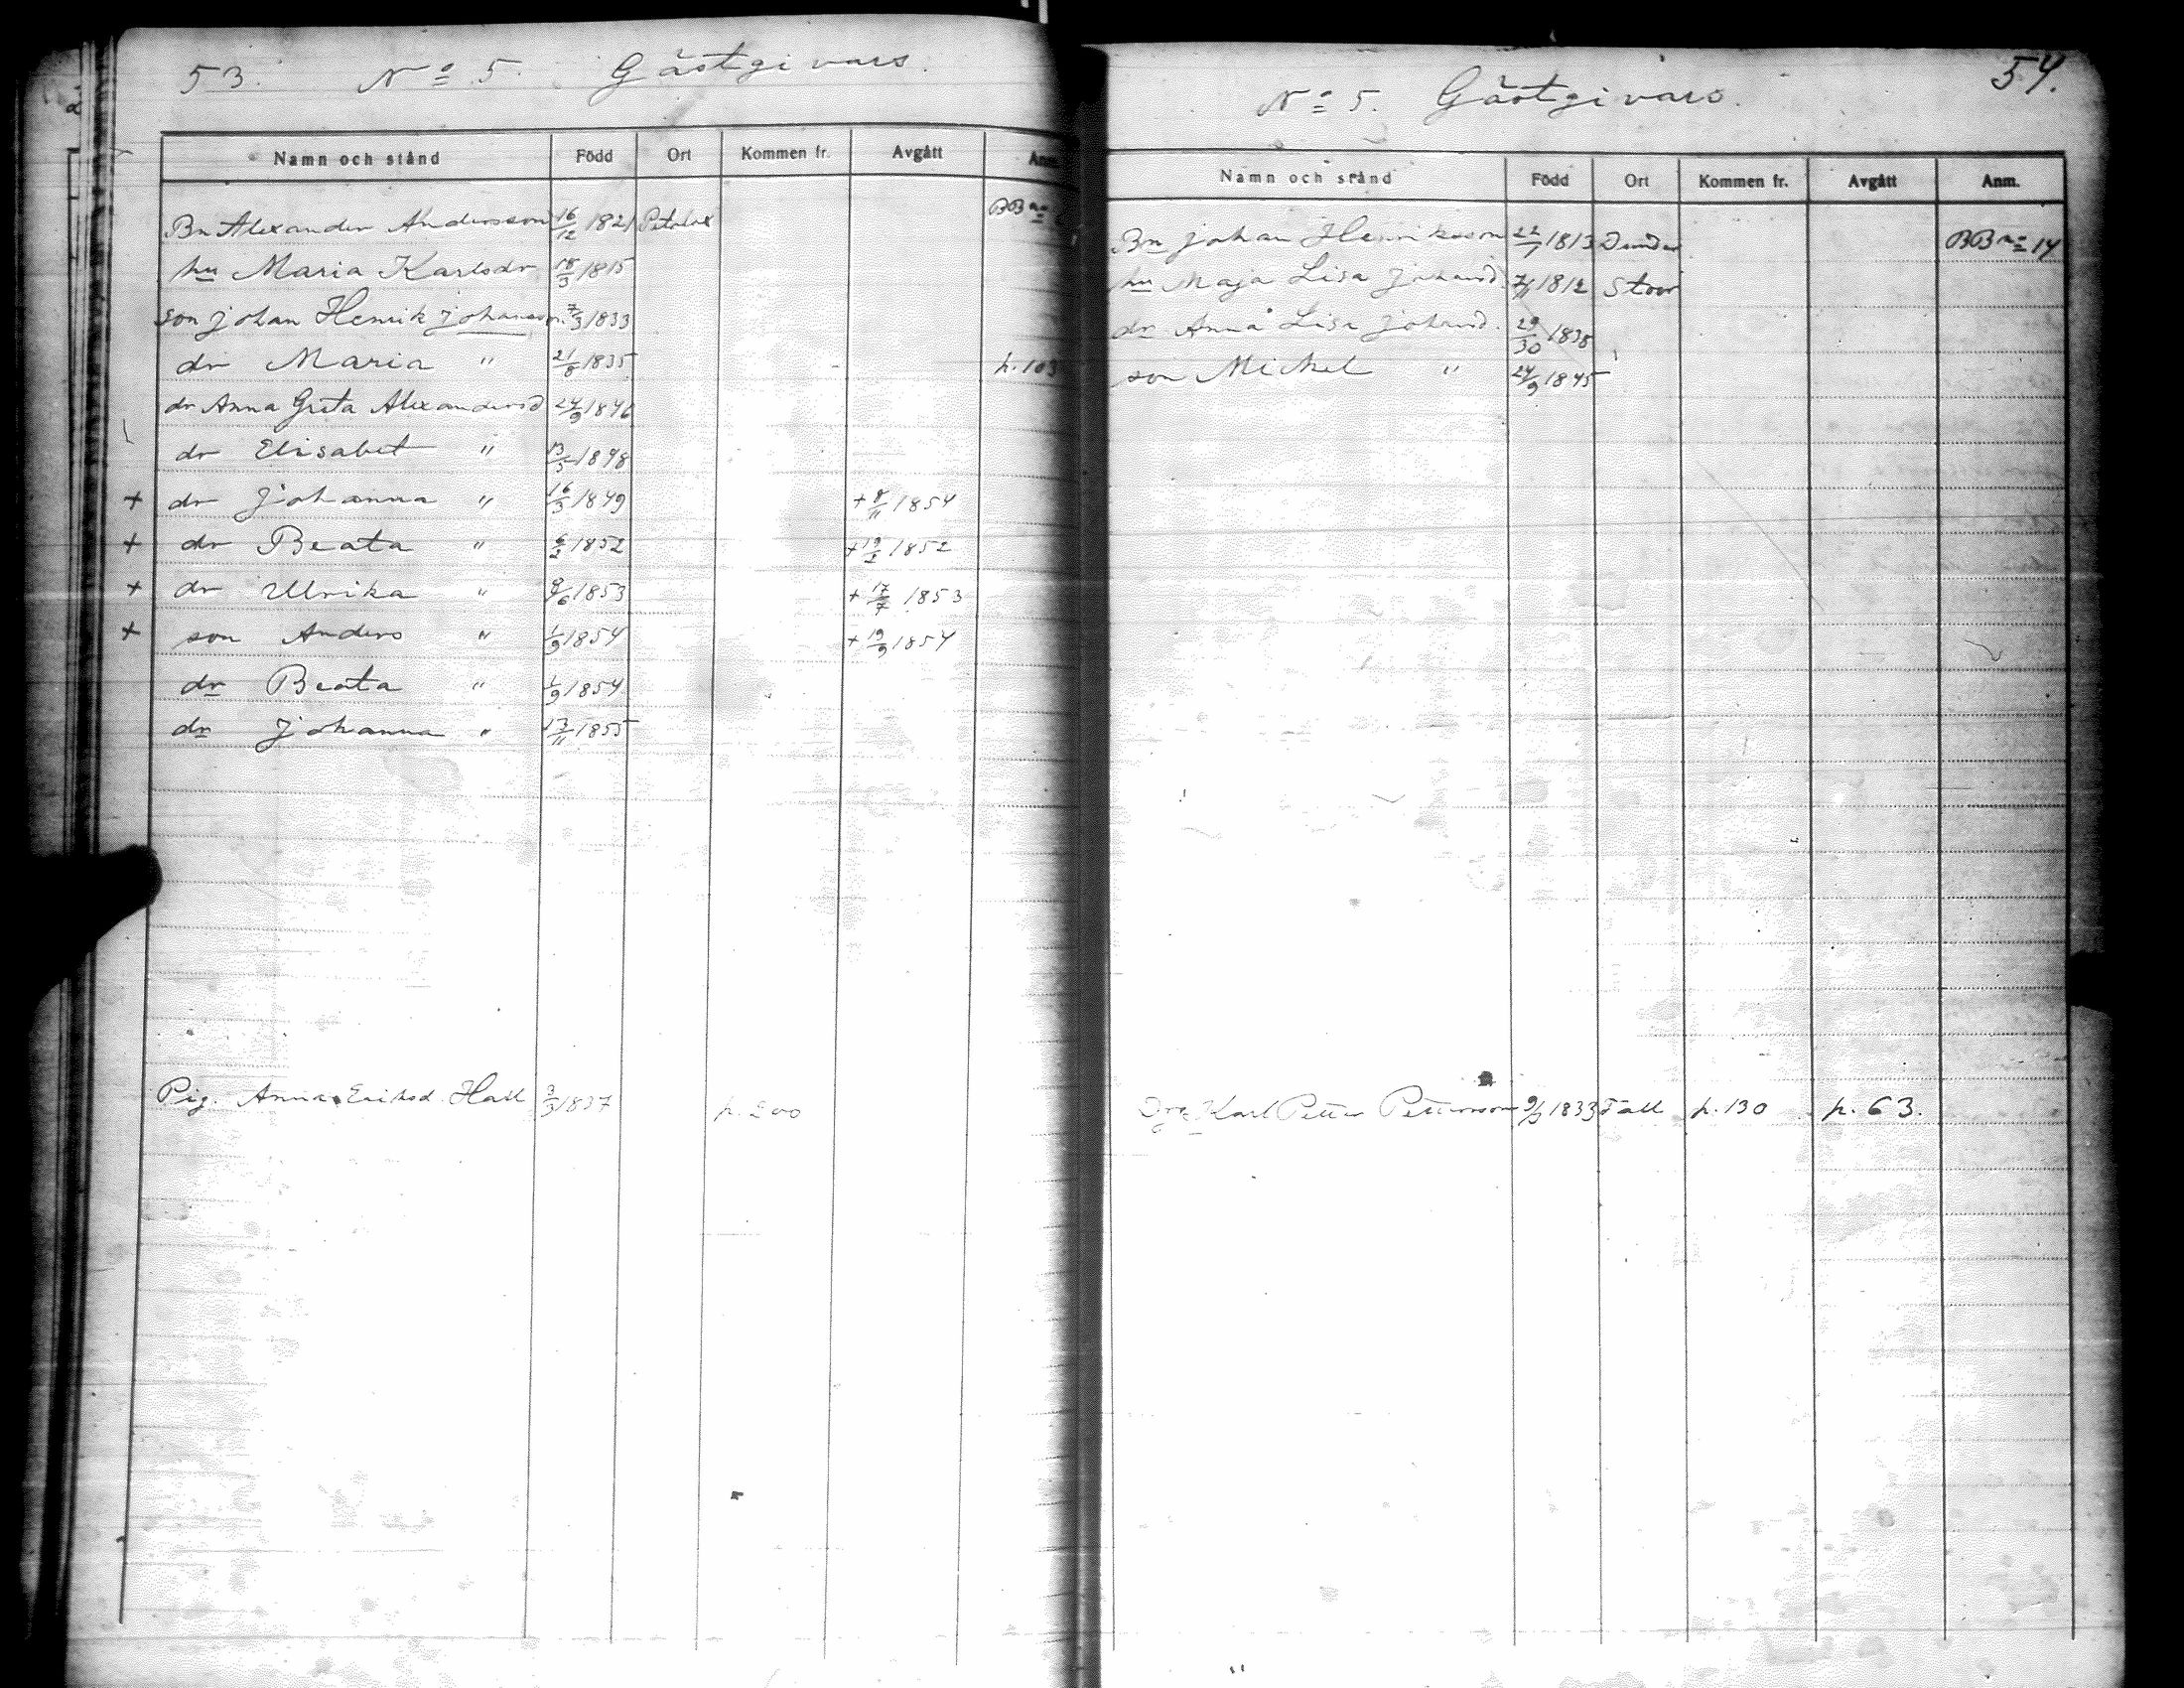 53. No 5. Gästgivars.
Namn och stånd Född Ort Kommen fr. Avgått Anm.
Bn Alexander Andersson 16/12 1821 Petalax BB no
hu Maria Karlsdr 18/3 1815
son Johan Henrik Johansson 7/3 1833
dr Maria " 21/8 1835 p. 103
dr Anna Greta Alexandersd 24/9 1846
dr Elisabet " 13/5 1848
+ dr Johanna " 16/3 1849 + 8/11 1854
+ dr Beata " 6/2 1852 + 19/2 1852
+ dr Ulrika " 9/6 1853 + 17/7 1853
+ son Anders " 1/9 1854 + 19/9 1854
dr Beata " 1/9 1854
dr Johanna " 13/11 1855
Pig. Anna Eriksd. Hall 3/3 1837 p. 200
No 5. Gästgivars. 54.
Namn och stånd Född Ort Kommen fr. Avgått Anm.
Bn Johan Henriksson 22/7 1813 BB no 14
hu Maja Lisa Johansd. 1812 Stoor
dr Anna Lisa Johansd. 29/30 1838
son Mickel " 24/9 1845
Drg Karl Petter Pettersson 9/3 1833 Tall p. 130 p. 63.